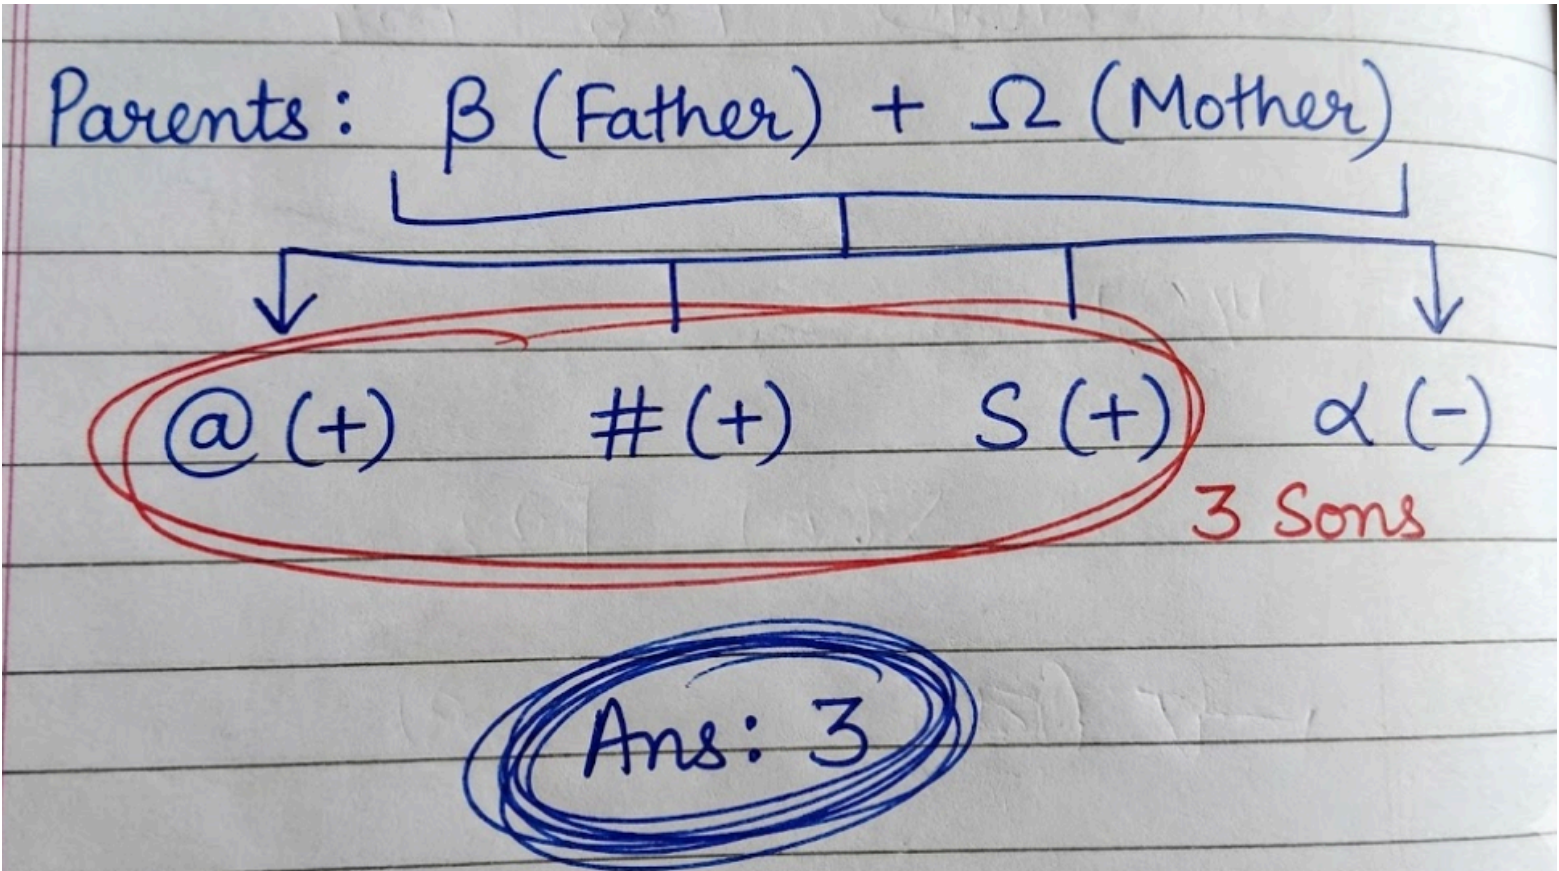 Parents: β (Father) + Ω (Mother)
@ (+) # (+) S (+) α (-)
3 Sons
Ans: 3